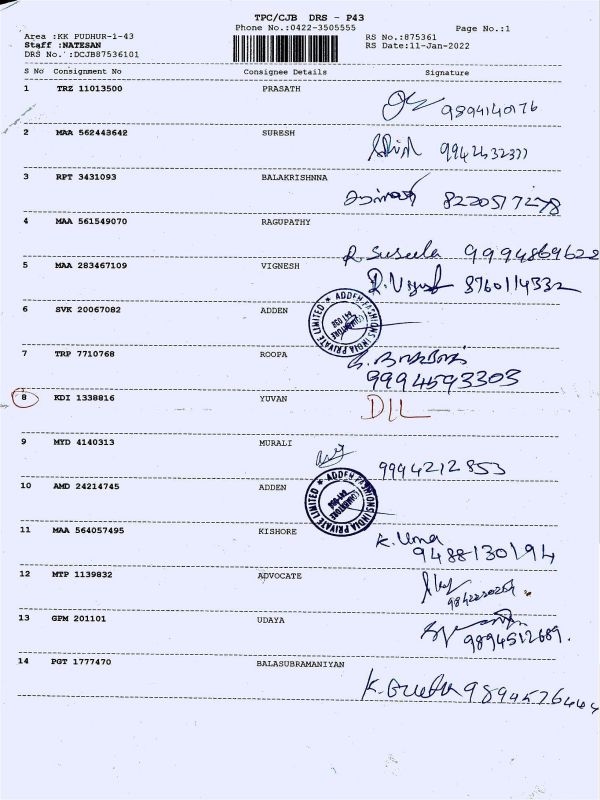 TPC/CJB DRS - P43
Phone No.:0422-3505555
Page No.:1
Area :KK PUDHUR-1-43
RS No.:875361
Staff :NATESAN
RS Date:11-Jan-2022
DRS No.:DCJB87536101
S No Consignment No Consignee Details Signature
1 TRZ 11013500 PRASATH
9894140176
2 MAA 562443642 SURESH
9942432377
3 RPT 3431093 BALAKRISHNNA
8220517278
4 MAA 561549070 RAGUPATHY
R. Suseela 9994869622
5 MAA 283467109 VIGNESH
8760114332
6 SVK 20067082 ADDEN
ADDEN FASHIONS INDIA PRIVATE LIMITED
7 TRP 7710768 ROOPA
9994593303
8 KDI 1338816 YUVAN DIL
9 MYD 4140313 MURALI
9994212853
10 AMD 24214745 ADDEN
ADDEN FASHIONS INDIA PRIVATE LIMITED
11 MAA 564057495 KISHORE
K. Uma
9488130194
12 MTP 1139832 ADVOCATE
13 GPM 201101 UDAYA
9894512689.
14 PGT 1777470 BALASUBRAMANIYAN
9894576444